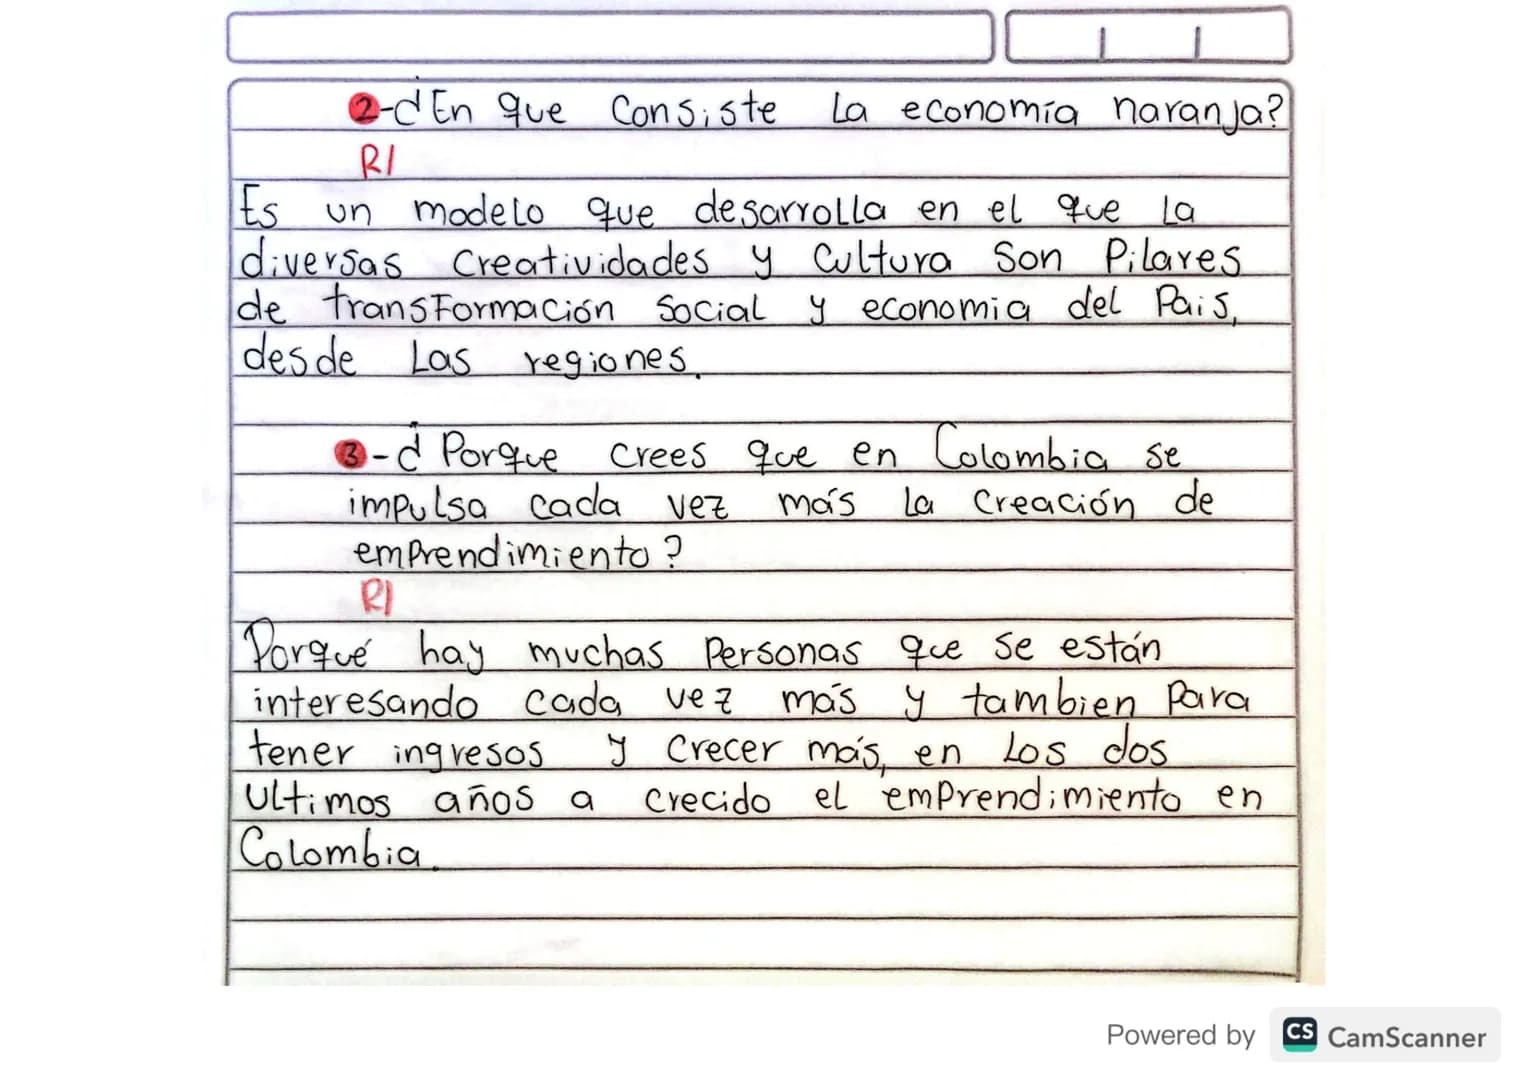 2-¿En que consiste la economía naranja?
R/
Es un modelo que desarrolla en el que la
diversas creatividades y cultura son pilares
de transformación social y economia del pais,
desde las regiones.
3-¿Porque crees que en Colombia se
impulsa cada vez más la creación de
emprendimiento?
R/
Porqué hay muchas personas que se están
interesando cada vez más y tambien para
tener ingresos y crecer más, en los dos
ultimos años a crecido el emprendimiento en
Colombia.
Powered by CS CamScanner